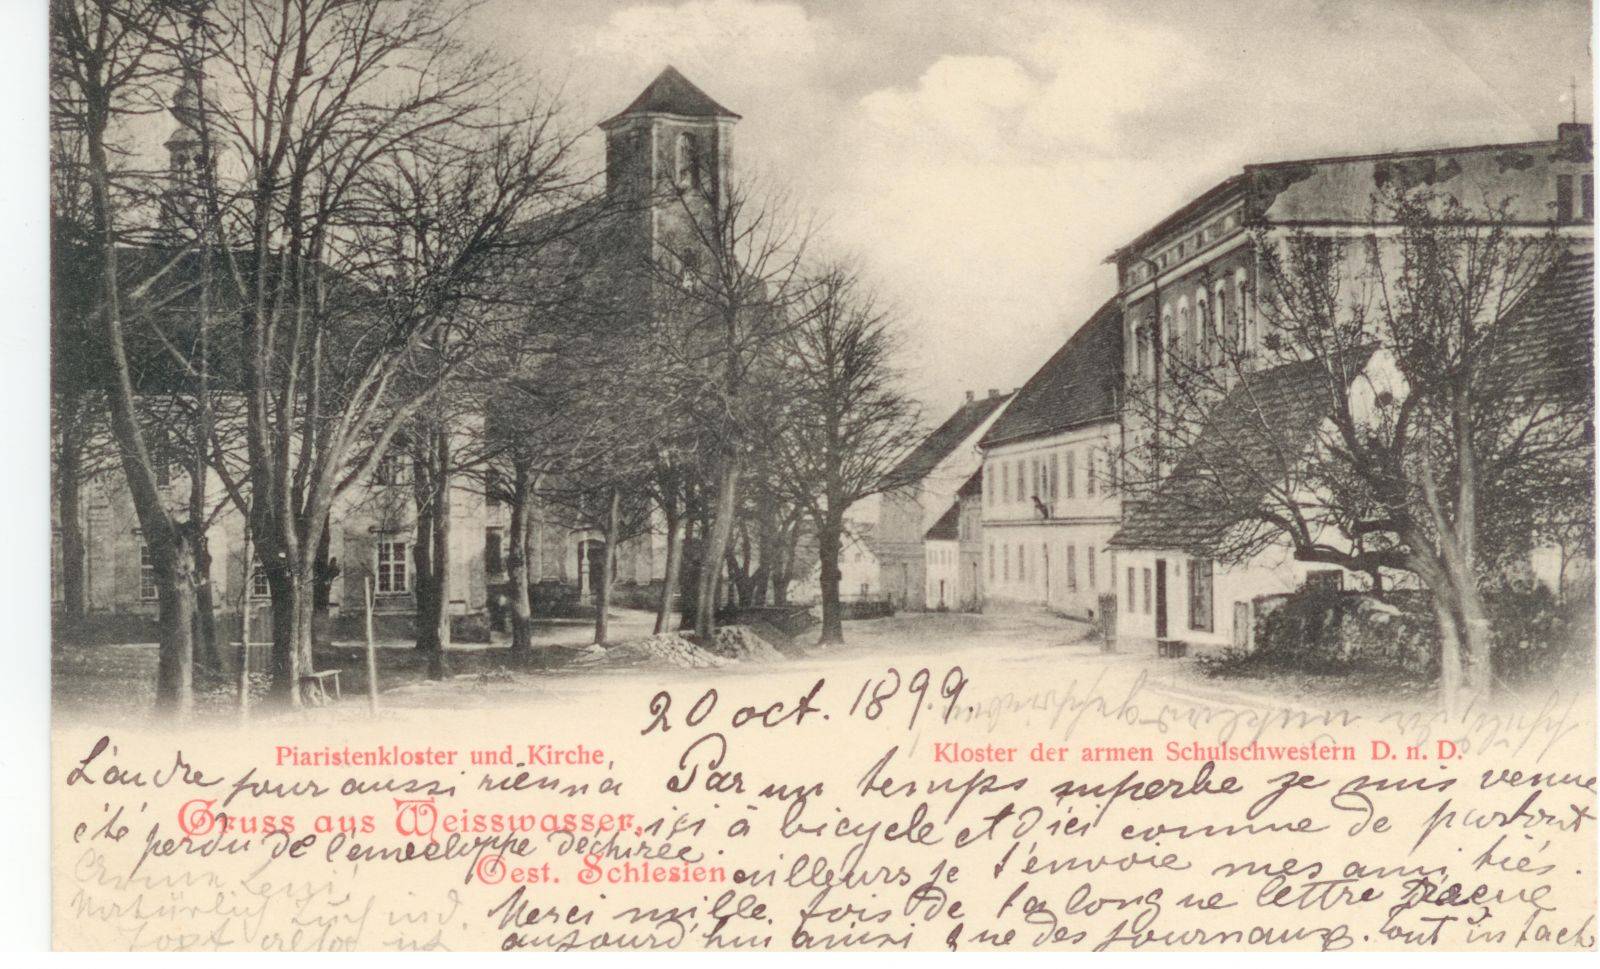 20 oct. 1899.
Piaristenkloster und Kirche,
Kloster der armen Schulschwestern D. n. D.
Gruss aus Weisswasser,
Oest. Schlesien
Par un temps superbe je suis venue
ici à bicyclette et d'ici comme de partout
ailleurs je t'envoie mes amitiés.
Merci mille fois de ta longue lettre reçue
aujourd'hui ainsi que des journaux. Tout intact
L'autre jour aussi rien n'a
été perdu de l'enveloppe déchirée.
Natürlich